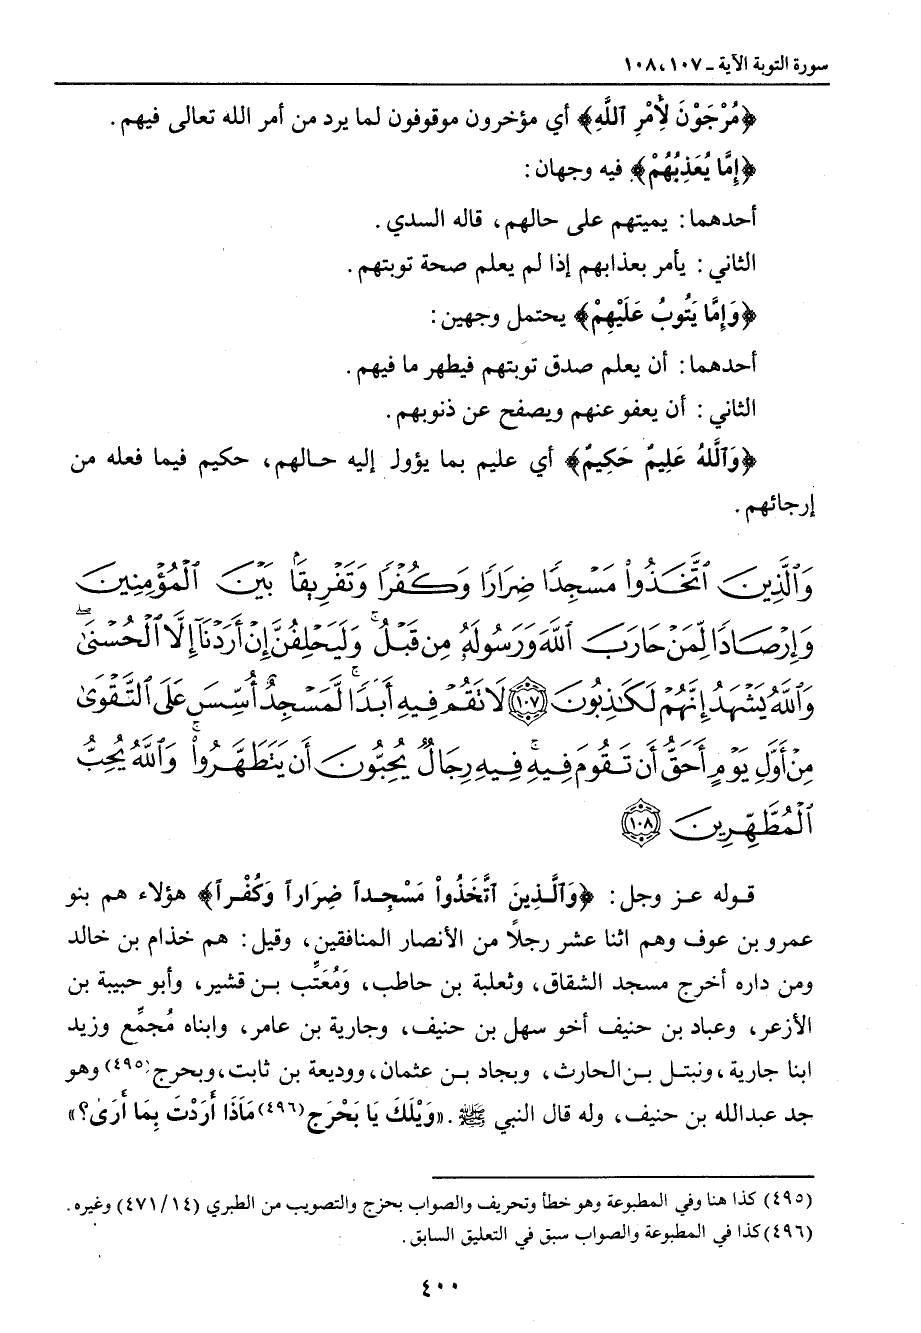 سورة التوبة الآية ـ ١٠٧، ١٠٨
﴿مُرْجَوْنَ لِأَمْرِ ٱللَّهِ﴾ أي مؤخرون موقوفون لما يرد من أمر الله تعالى فيهم.
﴿إِمَّا يُعَذِّبُهُمْ﴾ فيه وجهان:
أحدهما: يميتهم على حالهم، قاله السدي.
الثاني: يأمر بعذابهم إذا لم يعلم صحة توبتهم.
﴿وَإِمَّا يَتُوبُ عَلَيْهِمْ﴾ يحتمل وجهين:
أحدهما: أن يعلم صدق توبتهم فيطهر ما فيهم.
الثاني: أن يعفو عنهم ويصفح عن ذنوبهم.
﴿وَٱللَّهُ عَلِيمٌ حَكِيمٌ﴾ أي عليم بما يؤول إليه حالهم، حكيم فيما فعله من
إرجائهم.
وَٱلَّذِينَ ٱتَّخَذُواْ مَسْجِدًا ضِرَارًا وَكُفْرًا وَتَفْرِيقًۢا بَيْنَ ٱلْمُؤْمِنِينَ
وَإِرْصَادًا لِّمَنْ حَارَبَ ٱللَّهَ وَرَسُولَهُۥ مِن قَبْلُ ۚ وَلَيَحْلِفُنَّ إِنْ أَرَدْنَآ إِلَّا ٱلْحُسْنَىٰ ۖ
وَٱللَّهُ يَشْهَدُ إِنَّهُمْ لَكَٰذِبُونَ ١٠٧ لَا تَقُمْ فِيهِ أَبَدًا ۚ لَّمَسْجِدٌ أُسِّسَ عَلَى ٱلتَّقْوَىٰ
مِنْ أَوَّلِ يَوْمٍ أَحَقُّ أَن تَقُومَ فِيهِ ۚ فِيهِ رِجَالٌ يُحِبُّونَ أَن يَتَطَهَّرُواْ ۚ وَٱللَّهُ يُحِبُّ
ٱلْمُطَّهِّرِينَ ١٠٨
قوله عز وجل: ﴿وَٱلَّذِينَ ٱتَّخَذُواْ مَسْجِداً ضِرَاراً وَكُفْراً﴾ هؤلاء هم بنو
عمرو بن عوف وهم اثنا عشر رجلاً من الأنصار المنافقين، وقيل: هم خذام بن خالد
ومن داره أخرج مسجد الشقاق، وثعلبة بن حاطب، وَمُعَتِّب بن قشير، وأبو حبيبة بن
الأزعر، وعباد بن حنيف أخو سهل بن حنيف، وجارية بن عامر، وابناه مُجمِّع وزيد
ابنا جارية، ونبتل بن الحارث، وبجاد بن عثمان، ووديعة بن ثابت، وبحرج(٤٩٥) وهو
جد عبدالله بن حنيف، وله قال النبي ﷺ. «وَيْلَكَ يَا بَحْرَج(٤٩٦) مَاذَا أَرَدْتَ بِمَا أَرَىٰ؟»
(٤٩٥) كذا هنا وفي المطبوعة وهو خطأ وتحريف والصواب بحزج والتصويب من الطبري (١٤/ ٤٧١) وغيره.
(٤٩٦) كذا في المطبوعة والصواب سبق في التعليق السابق.
٤٠٠